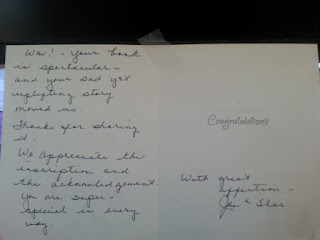 Wow! - Your book
is spectacular -
and your sad yet
uplifting story
moved us.
Thanks for sharing
it.
We appreciate the
inscription and
the acknowledgement.
You are super-
special in every
way.
Congratulations
With great
affection -
Jan &